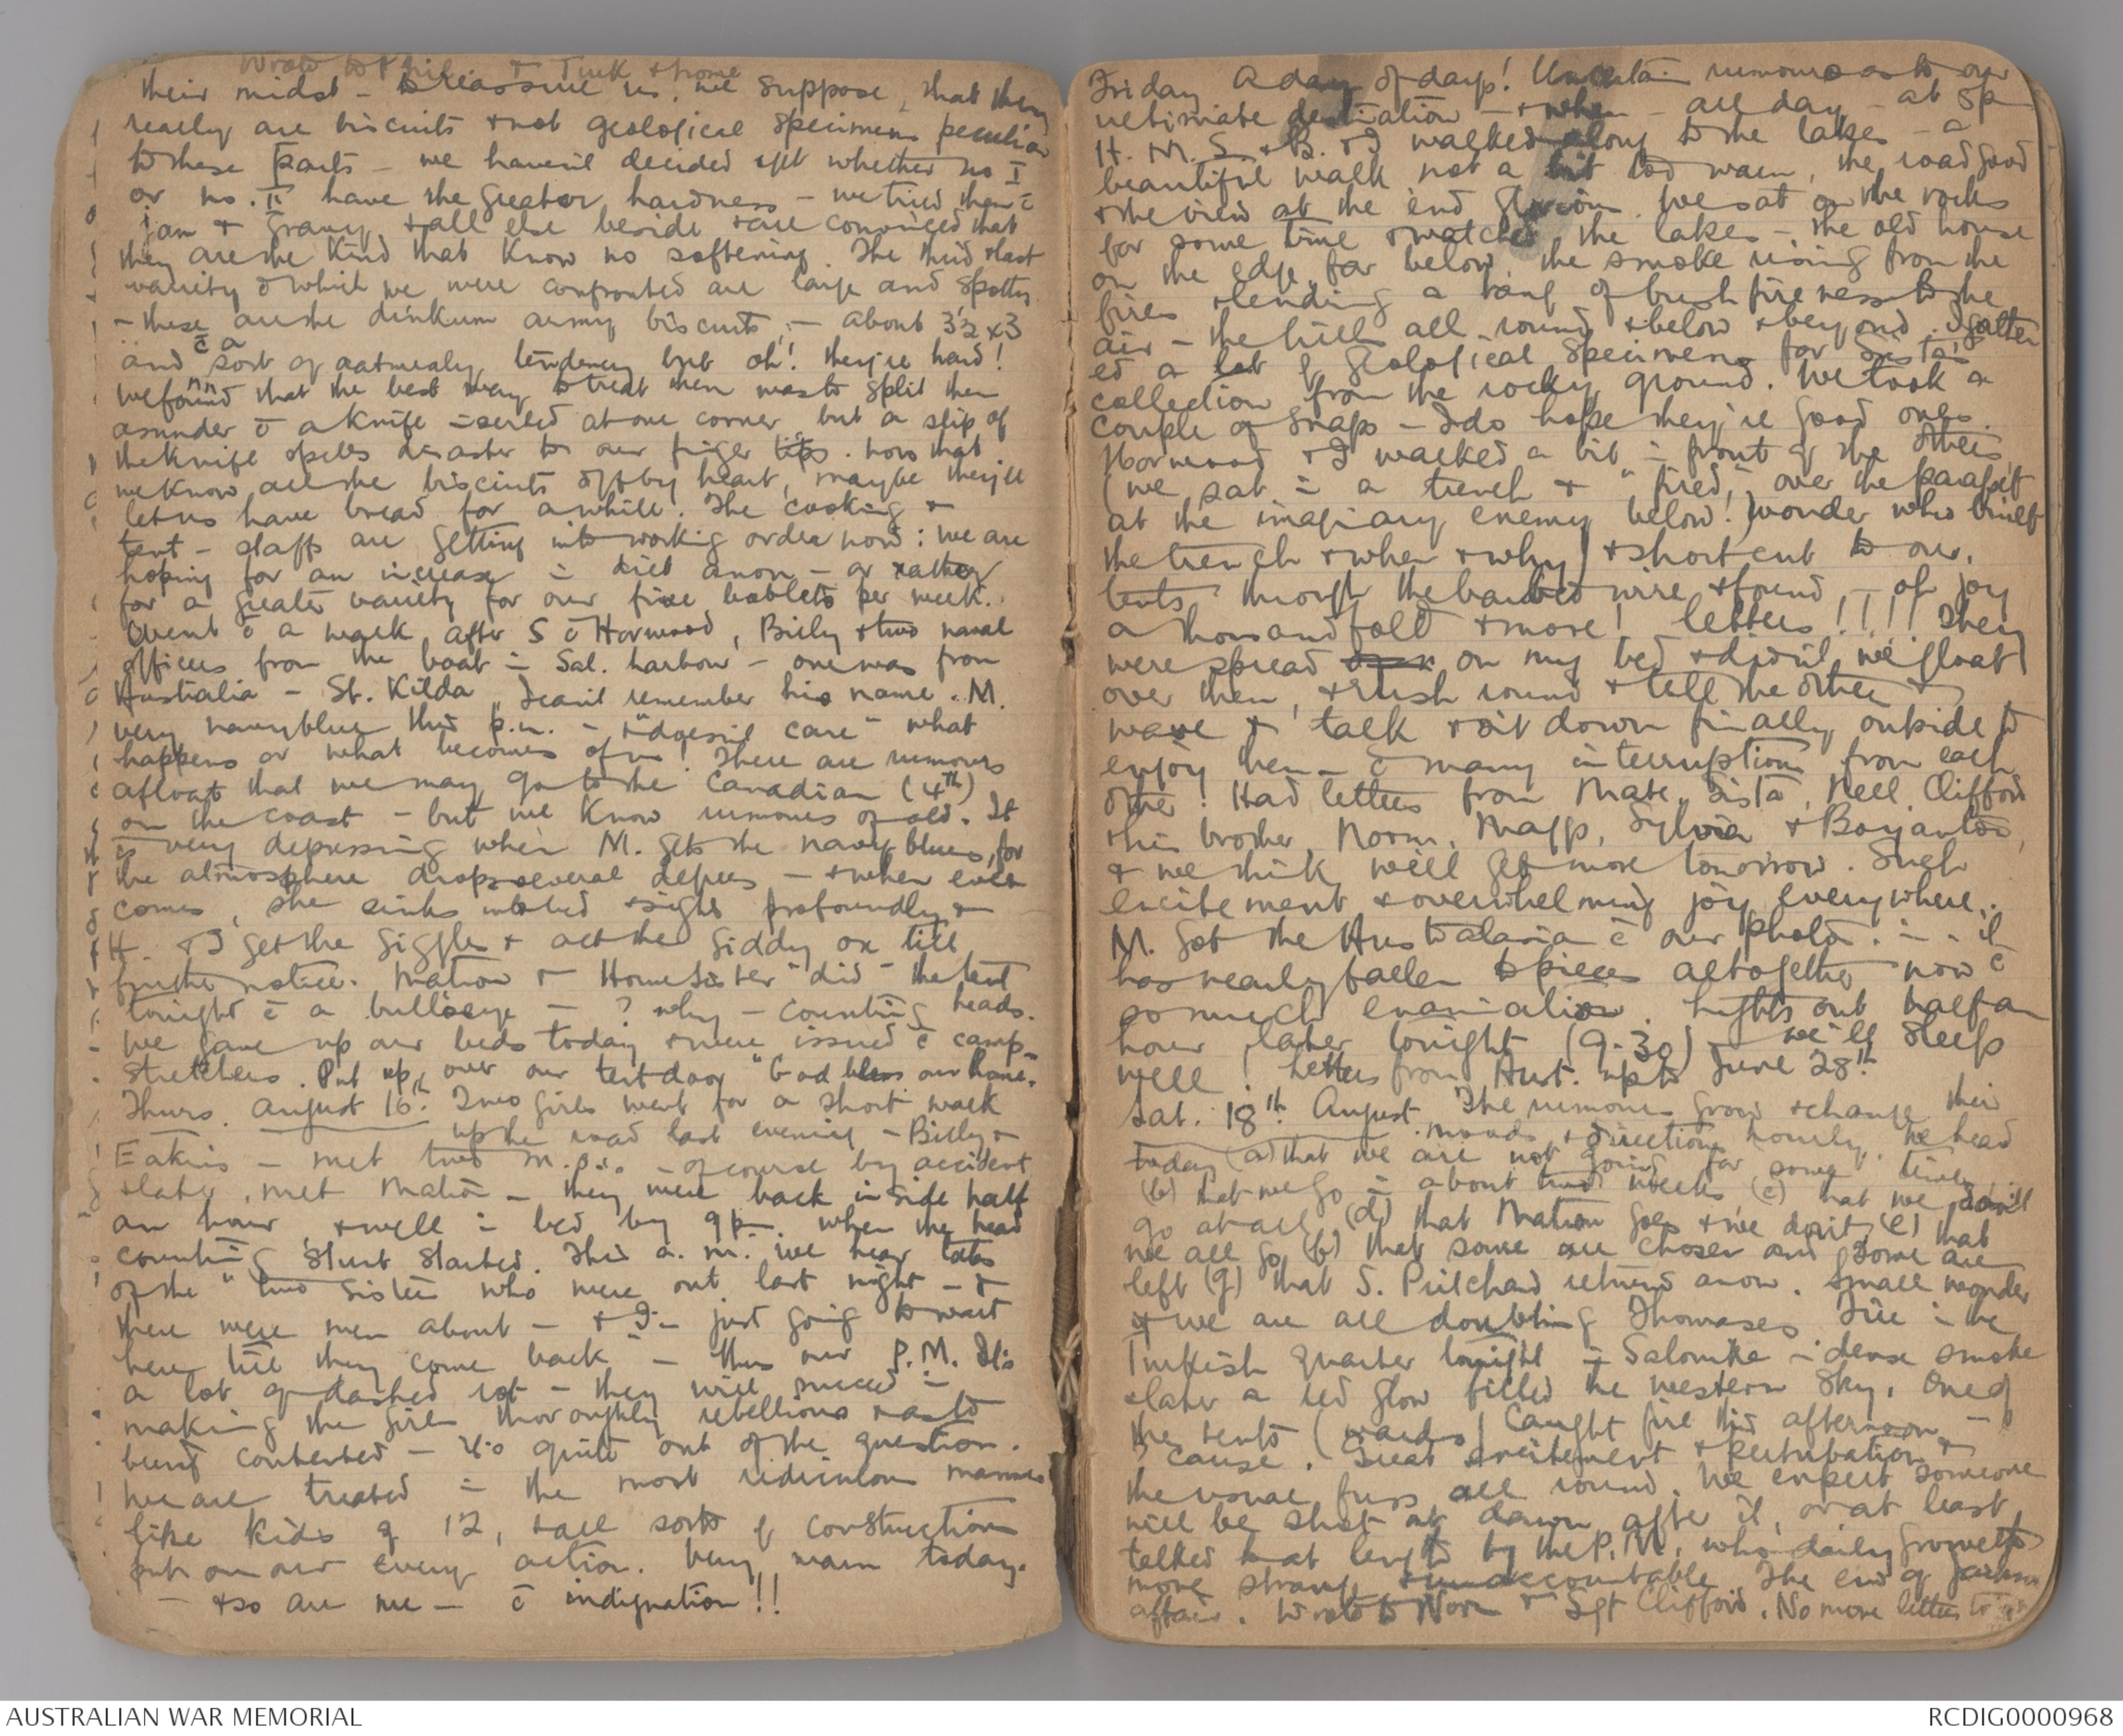 Wrote to Phil & Tuck & home
their midst - to reassure us, we suppose, that they
really are biscuits & not geological specimens peculiar
to these parts - we haven't decided yet whether no I
or no. II have the greater hardness - we tried them c̄
jam & gravy & all else beside & are convinced that
they are the kind that know no softening. The third & last
variety c̄ which we were confronted are large and spotty
- these are the dinkum army biscuits, - about 3½ x 3
and c̄ a sort of oatmealy tendency but oh! they're hard!
We found that the best way to treat them was to split them
asunder c̄ a knife inserted at one corner but a slip of
the knife spells disaster to our finger tips. Now that
we know all the biscuits off by heart, maybe they'll
let us have bread for awhile. The cooking &
tent - staffs are getting into working order now: we are
hoping for an increase in diet anon - or rather
for a greater variety for our five boblets per week.
Went c̄ a walk after 5 c̄ Horwood, Billy & two naval
officers from the boat in Sal. harbour - one was from
Australia - St. Kilda, I can't remember his name. M.
very navy blue this p.m. - & "doesn't care" what
happens or what becomes of us! There are rumours
afloat that we may go to the Canadian (4th)
on the coast - but we know rumours of old. It
is very depressing when M. gets the navy blues, for
the atmosphere drops several degrees - & when even
comes, she sinks into bed & sighs profoundly &
H. & I get the giggles & act the giddy ox till
further notice. Matron & Home Sister "did" the tent
tonight c̄ a bullseye - ? why - counting heads.
We gave up our beds today & were issued c̄ camp
stretchers. Put up over our tent door "God bless our home."
Thurs. August 16th. Two girls went for a short walk
up the road last evening - Billy &
Eakins - met two M.O.s - of course by accident
& later, met Matron - they were back inside half
an hour, & well in bed by 9 p.m. when the head
counting stunt started. This a.m. we hear tales
of the "two sisters who were out last night - &
there were men about - & I'm just going to wait
here till they come back" - thus our P.M. It's
a lot of dashed rot - they will succeed in
making the girls thoroughly rebellious & as to
being contented - it's quite out of the question.
We are treated in the most ridiculous manner
like kids of 12, & all sorts of constructions
put on our every action. Very warm today.
- & so are we - c̄ indignation!!
Friday A day of days! Uncertain rumours as to our
ultimate destination - & when - all day - at 5p
H. M. S. & B. & I walked along to the lakes - a
beautiful walk not a bit too warm, the road good
& the view at the end glorious. We sat on the rocks
for some time & watched the lakes - the old house
on the edge far below, the smoke rising from the
fires & lending a tang of bush fireness to the
air - the hills all round & below & beyond. I gather
ed a lot of geological specimens for Sista's
collection from the rocky ground. We took a
couple of snaps - I do hope they're good ones.
Horwood & I walked a bit in front of the others
(we sat in a trench & "fired" over the parapet
at the imaginary enemy below! Wonder who built
the trench & when & why) & short cut to our
tents through the barbed wire & found, - oh joy
a thousandfold & more! letters!!!! They
were spread on my bed & didn't we gloat
over them, & rush round & tell the others &
wave & talk & sit down finally outside to
enjoy them - c̄ many interruptions from each
other! Had letters from Mate, Sista, Nell, Clifford
& his brother Norm, Magp, Sylvia & Boyanton,
& we think we'll get more tomorrow. Such
excitement & overwhelming joy everywhere.
M. got the Australasia c̄ our photo in - it
has nearly fallen to pieces altogether now c̄
so much examination. Lights out half an
hour later tonight (9.30) - we'll sleep
well! Letters from Aust. up to June 28th.
Sat. 18th August. The rumours grow & change their
moods & directions hourly. We heard
today (a) that we are not going for some time
(b) that we go in about two weeks (c) that we don't
go at all (d) that Matron goes & we don't, (e) that
we all go (f) that some are chosen and some are
left (g) that S. Pritchard returns anon. Small wonder
if we are all doubting Thomases. Fire in the
Turkish quarter tonight in Salonika - dense smoke
& later a red glow filled the western sky. One of
the tents (wards) caught fire this afternoon -
? cause. Great excitement & perturbation &
the usual fuss all round. We expect someone
will be shot at dawn after it, or at least
talked to at length by the P.M. who daily groweth
more strange & unaccountable. The end of
affair. Wrote to Norm & Sgt Clifford. No more letters
AUSTRALIAN WAR MEMORIAL
RCDIG0000968